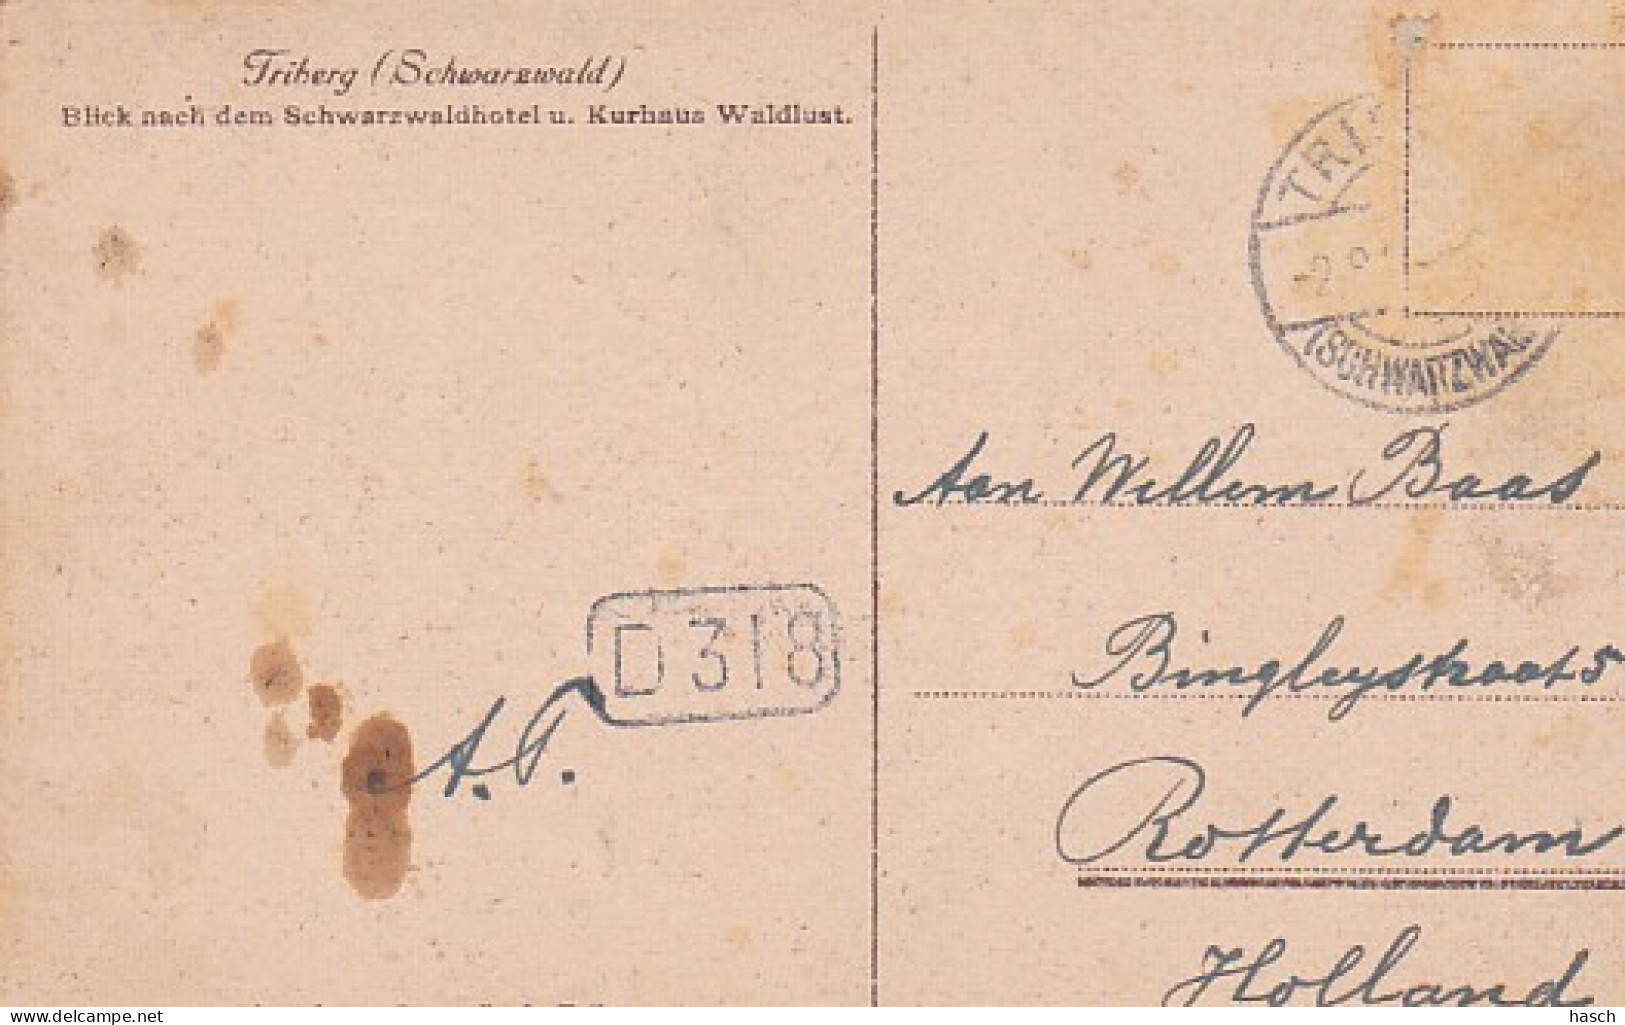 Triberg (Schwarzwald)
Blick nach dem Schwarzwaldhotel u. Kurhaus Waldlust.
TRI
(SCHWARZWAL
D318
A.T.
Aan Willem Baas
Bingleystraat 5
Rotterdam
Holland
© www.delcampe.net
hasch